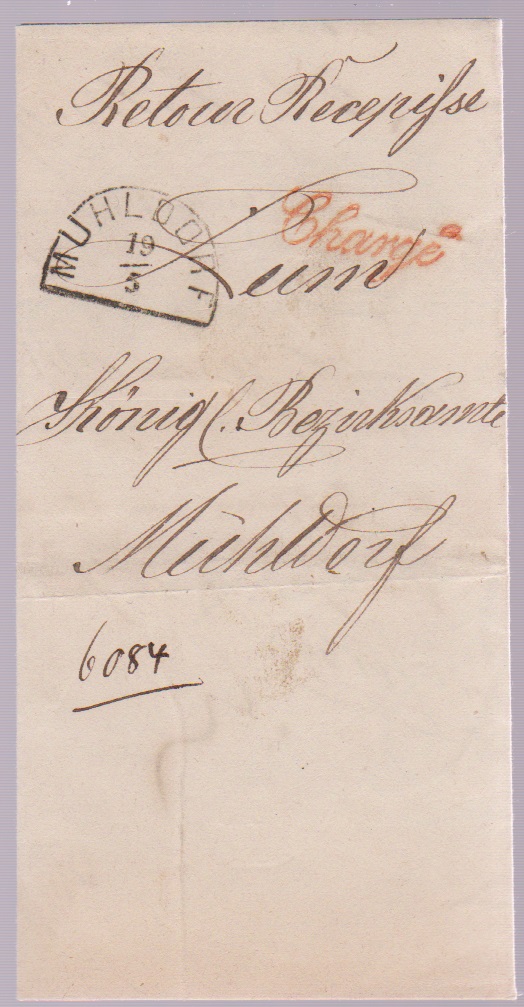 Retour Recepisse
MÜHLDORF
19
5
Chargé
Zum
Königl. Bezirksamte
Mühldorf
6084